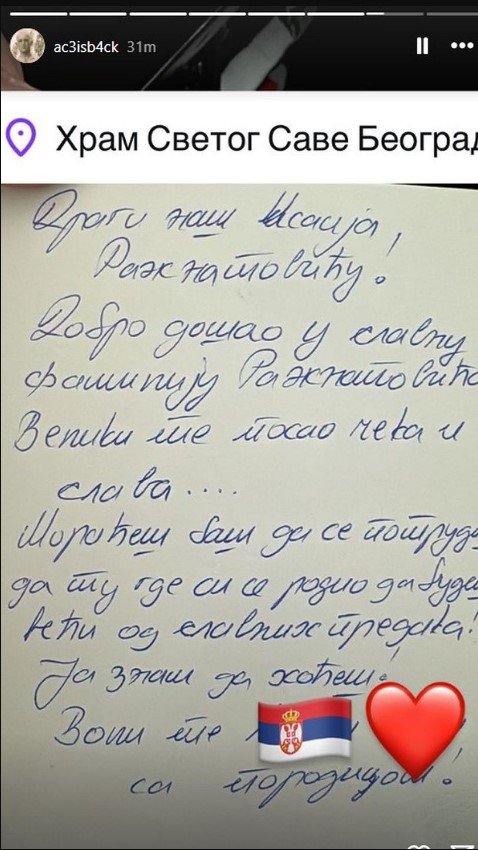 ac3isb4ck 31m
Храм Светог Саве Београд
Драги наш Исаија,
Ражнатовићу!
Добро дошао у славну
фамилију Ражнатовића
Велики те посао чека и
слава....
Мораћеш баш да се потруди
да ту где си се родио да будеш
већи од славних предака!
Ја знам да хоћеш!
Воли те
са породицом!